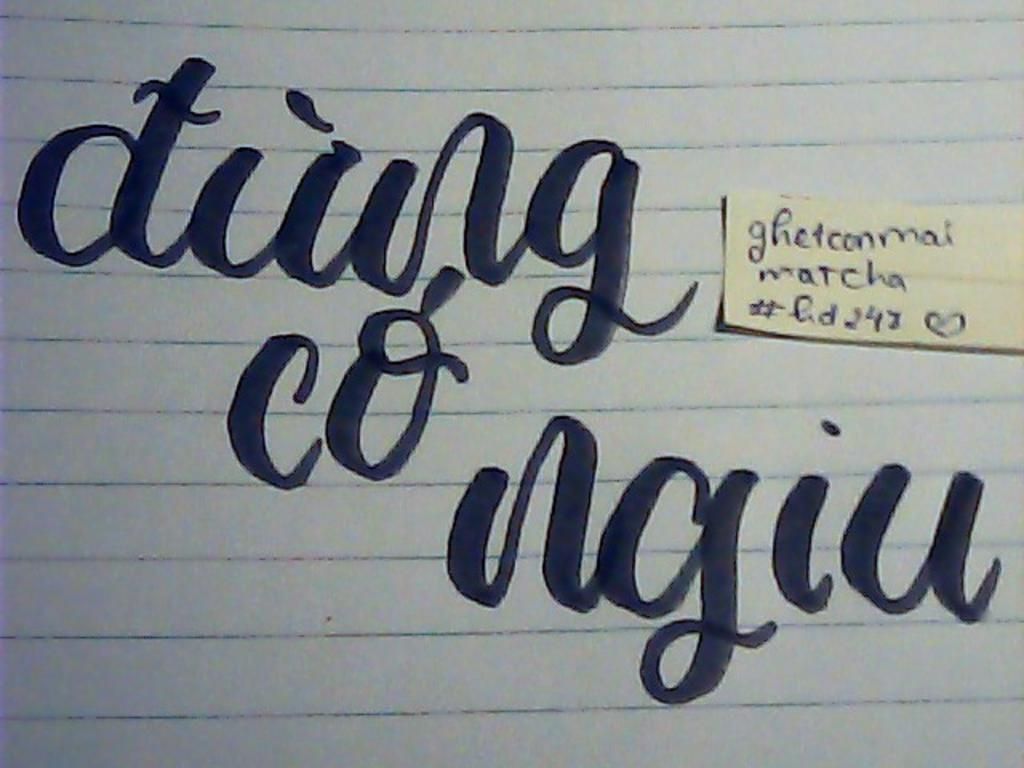 đừng
có
ngiu
ghetconmai
matcha
#hd247 ♡